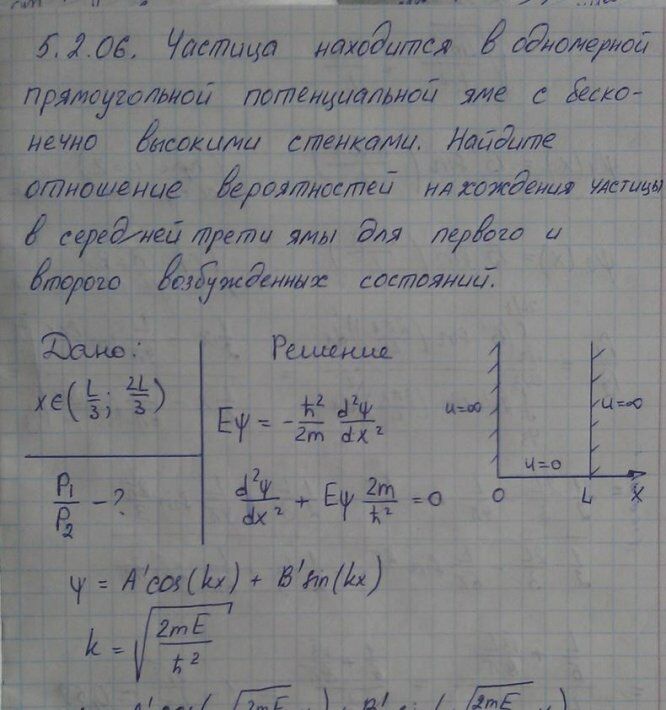 5.2.06. Частица находится в одномерной
прямоугольной потенциальной яме с беско-
нечно высокими стенками. Найдите
отношение вероятностей нахождения частицы
в середней трети ямы для первого и
второго возбужденных состояний.
Дано:
x∈(L/3; 2L/3)
P₁/P₂ - ?
Решение
Eψ = -ℏ²/2m d²ψ/dx²
d²ψ/dx² + Eψ 2m/ℏ² = 0
u=∞
u=∞
u=0
0 L X
ψ = A'cos(kx) + B'sin(kx)
k = √(2mE/ℏ²)